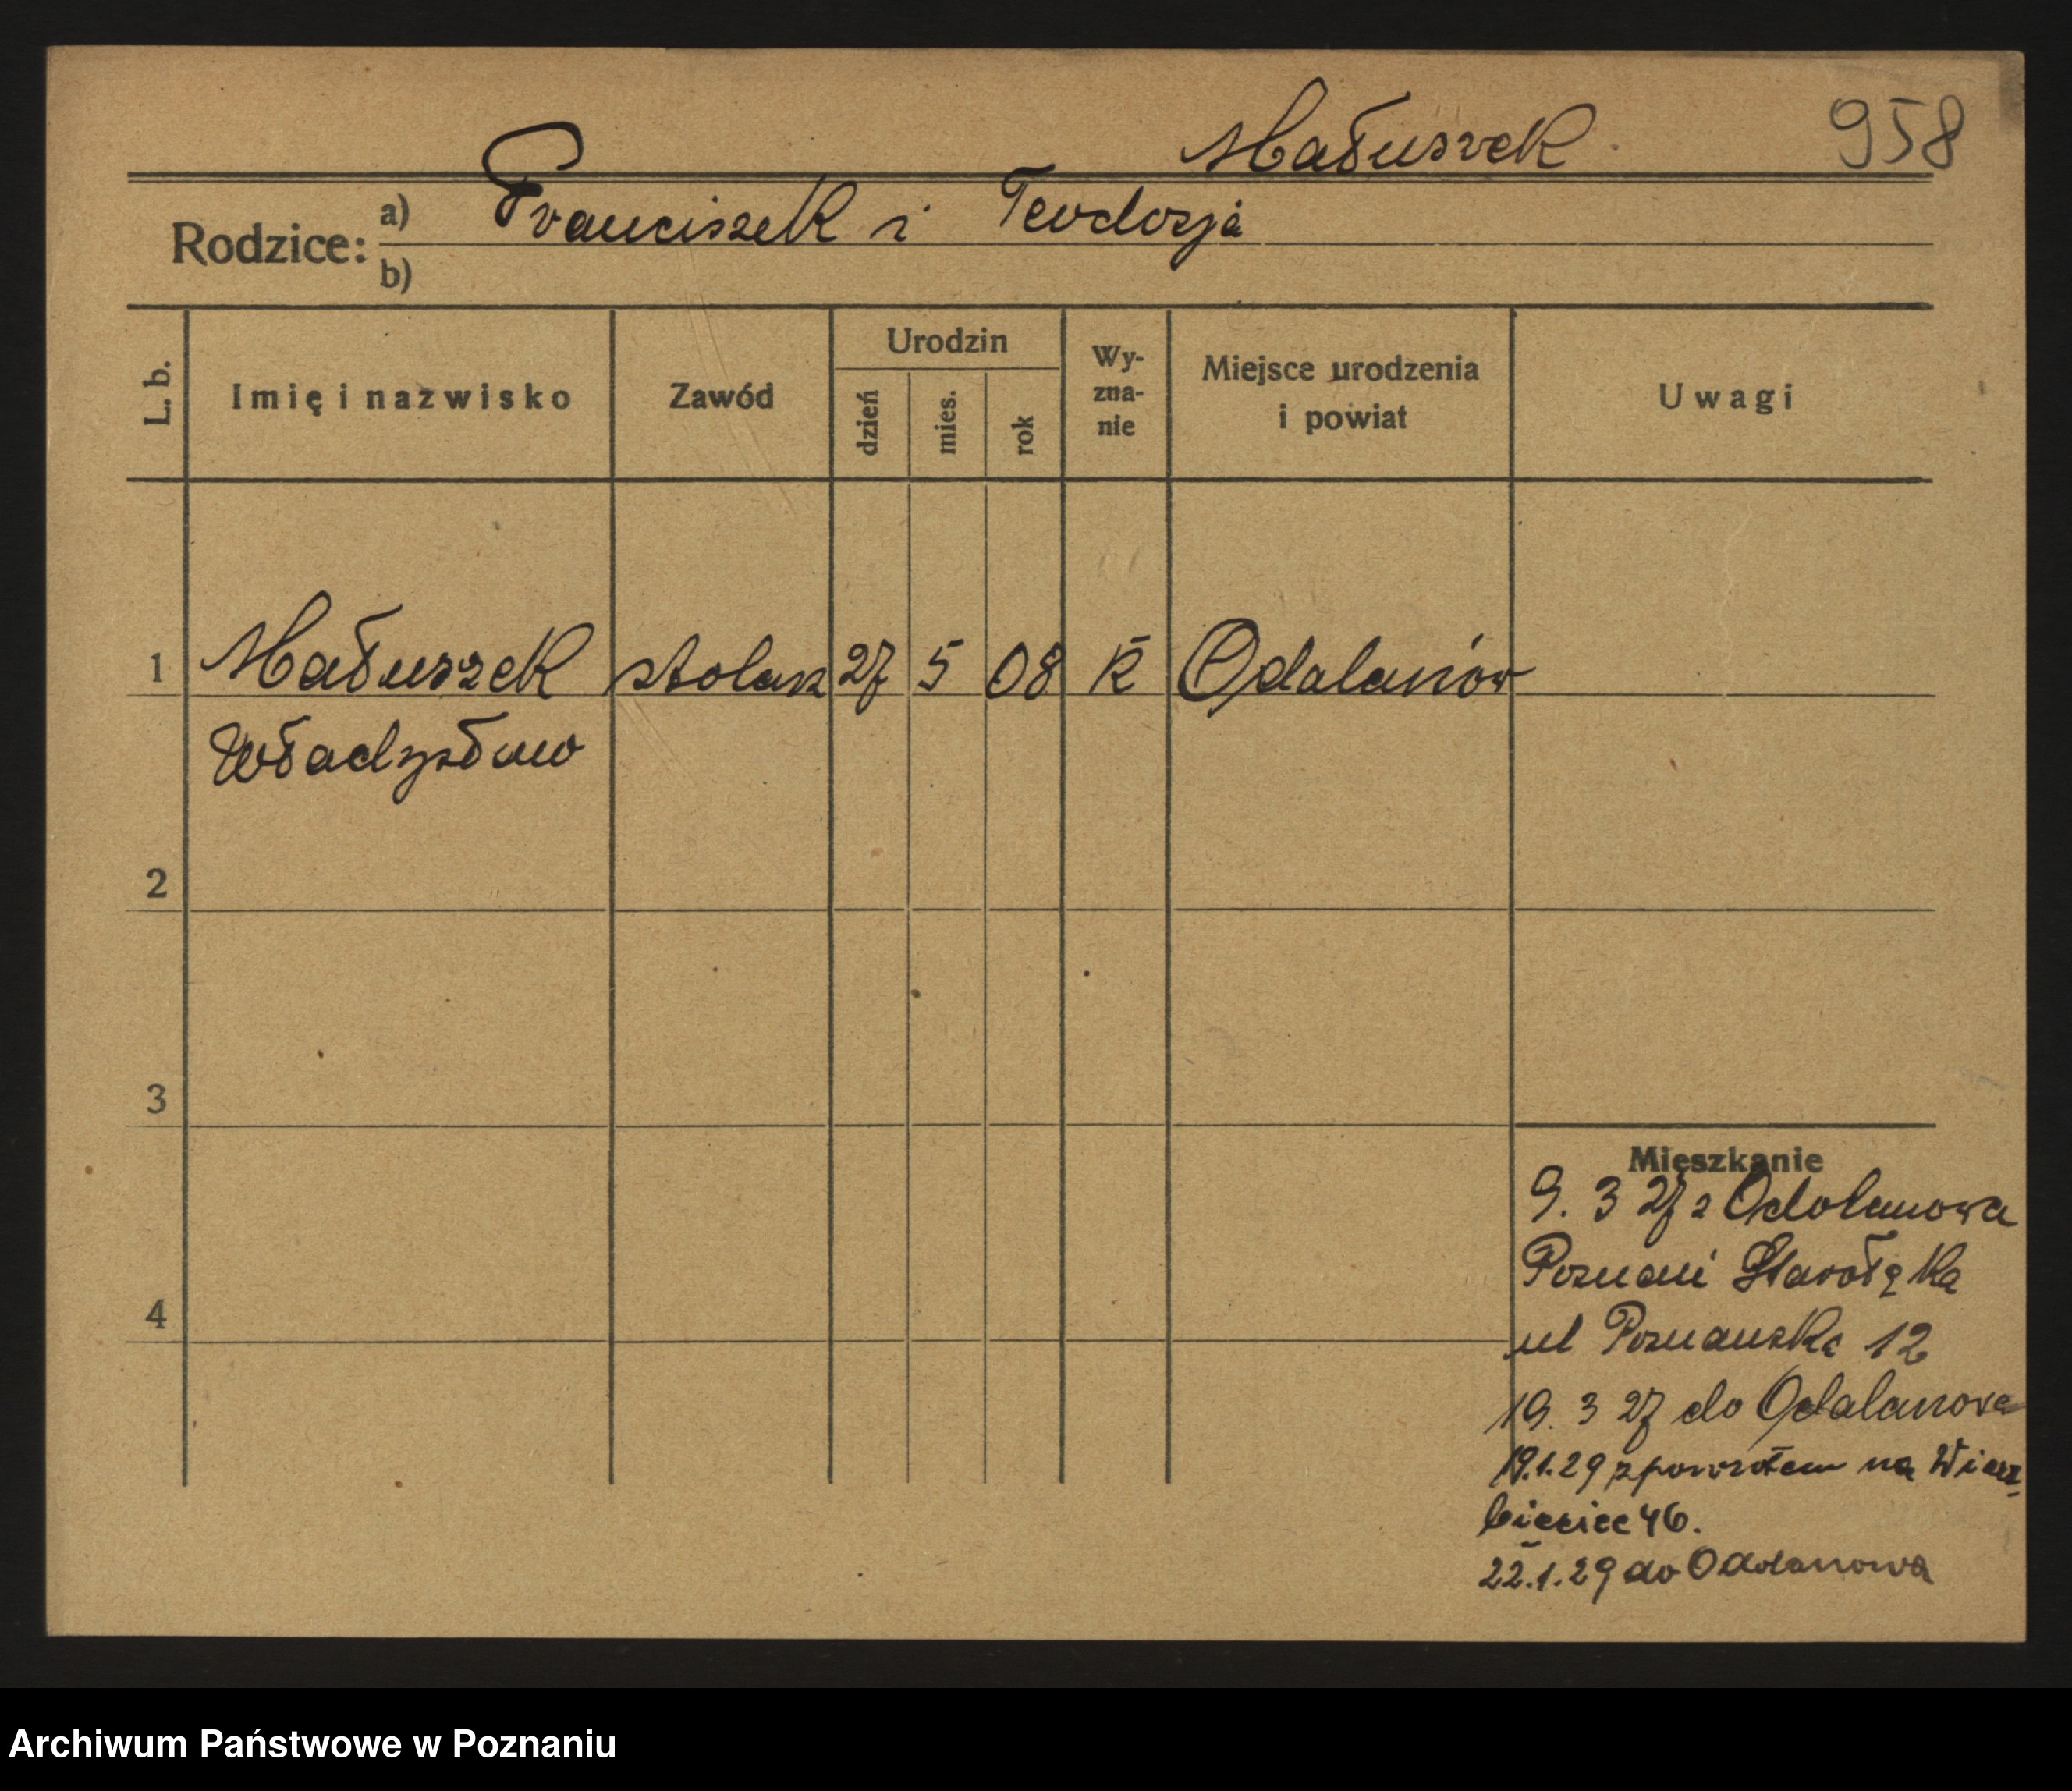 Małuszek 958
Rodzice: a) Franciszek i Teodozja
b)
L. b. Imię i nazwisko Zawód Urodzin dzień mies. rok Wy-zna-nie Miejsce urodzenia i powiat Uwagi
1 Małuszek stolarz 27 5 08 K Odalanów
Władysław
2
3
4
Mieszkanie
9. 3 27 z Odolanowa
Poznań Starołęka
ul Poznańska 12
19. 3 27 do Odalanowa
19.1.29 zpowrotem na Wierz-
bięcice 46.
22.1.29 do Odolanowa
Archiwum Państwowe w Poznaniu